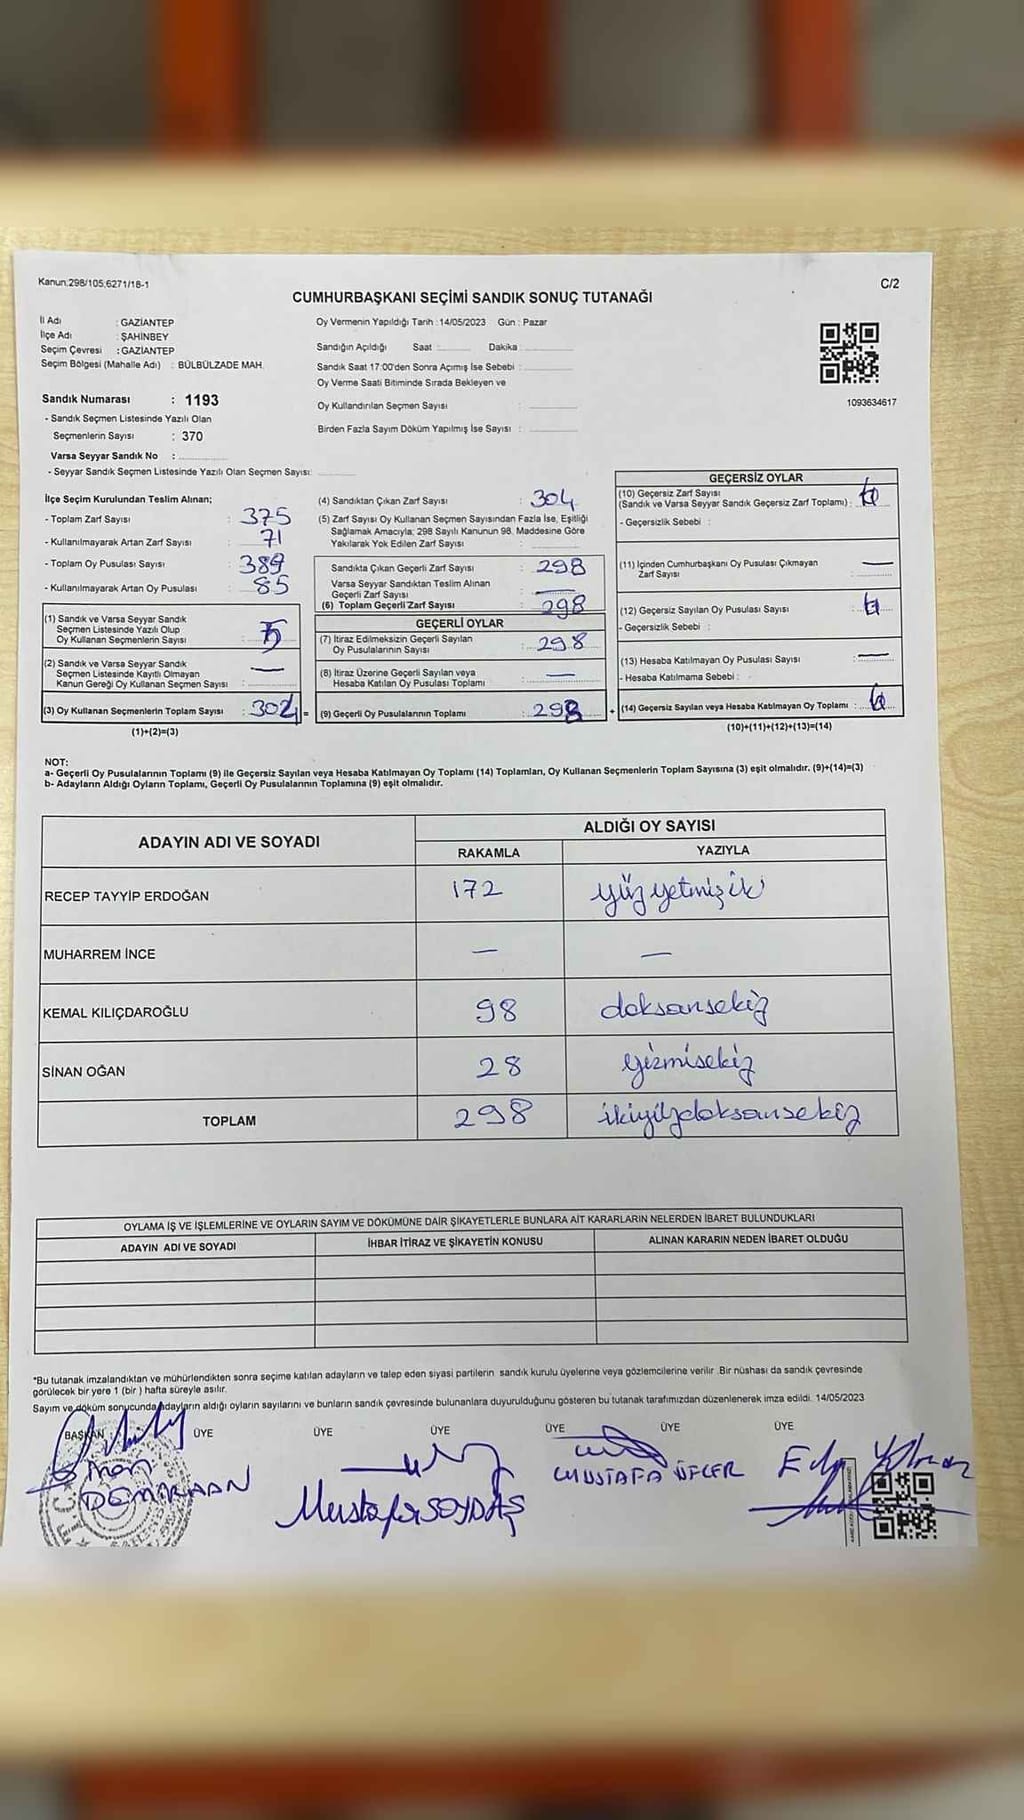 Kanun:298/105;6271/18-1
C/2
CUMHURBAŞKANI SEÇİMİ SANDIK SONUÇ TUTANAĞI
İl Adı : GAZİANTEP
İlçe Adı : ŞAHİNBEY
Seçim Çevresi : GAZİANTEP
Seçim Bölgesi (Mahalle Adı) : BÜLBÜLZADE MAH.
Sandık Numarası : 1193
- Sandık Seçmen Listesinde Yazılı Olan
Seçmenlerin Sayısı : 370
Varsa Seyyar Sandık No :
- Seyyar Sandık Seçmen Listesinde Yazılı Olan Seçmen Sayısı:
Oy Vermenin Yapıldığı Tarih :14/05/2023 Gün : Pazar
Sandığın Açıldığı Saat : Dakika :
Sandık Saat 17:00'den Sonra Açımış İse Sebebi :
Oy Verme Saati Bitiminde Sırada Bekleyen ve
Oy Kullandırılan Seçmen Sayısı :
Birden Fazla Sayım Döküm Yapılmış İse Sayısı :
1093634617
İlçe Seçim Kurulundan Teslim Alınan;
- Toplam Zarf Sayısı : 375
- Kullanılmayarak Artan Zarf Sayısı : 71
- Toplam Oy Pusulası Sayısı : 389
- Kullanılmayarak Artan Oy Pusulası : 85
(1) Sandık ve Varsa Seyyar Sandık
Seçmen Listesinde Yazılı Olup
Oy Kullanan Seçmenlerin Sayısı :
(2) Sandık ve Varsa Seyyar Sandık
Seçmen Listesinde Kayıtlı Olmayan
Kanun Gereği Oy Kullanan Seçmen Sayısı : —
(3) Oy Kullanan Seçmenlerin Toplam Sayısı : 304 =
(1)+(2)=(3)
(4) Sandıktan Çıkan Zarf Sayısı : 304
(5) Zarf Sayısı Oy Kullanan Seçmen Sayısından Fazla İse, Eşitliği
Sağlamak Amacıyla; 298 Sayılı Kanunun 98. Maddesine Göre
Yakılarak Yok Edilen Zarf Sayısı :
Sandıkta Çıkan Geçerli Zarf Sayısı : 298
Varsa Seyyar Sandıktan Teslim Alınan
Geçerli Zarf Sayısı : —
(6) Toplam Geçerli Zarf Sayısı : 298
GEÇERLİ OYLAR
(7) İtiraz Edilmeksizin Geçerli Sayılan
Oy Pusulalarının Sayısı : 298
(8) İtiraz Üzerine Geçerli Sayılan veya
Hesaba Katılan Oy Pusulası Toplamı : —
(9) Geçerli Oy Pusulalarının Toplamı : 298 +
GEÇERSİZ OYLAR
(10) Geçersiz Zarf Sayısı
(Sandık ve Varsa Seyyar Sandık Geçersiz Zarf Toplamı) :
- Geçersizlik Sebebi :
(11) İçinden Cumhurbaşkanı Oy Pusulası Çıkmayan
Zarf Sayısı : —
(12) Geçersiz Sayılan Oy Pusulası Sayısı : 6
- Geçersizlik Sebebi :
(13) Hesaba Katılmayan Oy Pusulası Sayısı : —
- Hesaba Katılmama Sebebi :
(14) Geçersiz Sayılan veya Hesaba Katılmayan Oy Toplamı : 6
(10)+(11)+(12)+(13)=(14)
NOT:
a- Geçerli Oy Pusulalarının Toplamı (9) ile Geçersiz Sayılan veya Hesaba Katılmayan Oy Toplamı (14) Toplamları, Oy Kullanan Seçmenlerin Toplam Sayısına (3) eşit olmalıdır. (9)+(14)=(3)
b- Adayların Aldığı Oyların Toplamı, Geçerli Oy Pusulalarının Toplamına (9) eşit olmalıdır.
ADAYIN ADI VE SOYADI ALDIĞI OY SAYISI
RAKAMLA YAZIYLA
RECEP TAYYİP ERDOĞAN 172 yüzyetmişiki
MUHARREM İNCE — —
KEMAL KILIÇDAROĞLU 98 doksansekiz
SİNAN OĞAN 28 yirmisekiz
TOPLAM 298 ikiyüzdoksansekiz
OYLAMA İŞ VE İŞLEMLERİNE VE OYLARIN SAYIM VE DÖKÜMÜNE DAİR ŞİKAYETLERLE BUNLARA AİT KARARLARIN NELERDEN İBARET BULUNDUKLARI
ADAYIN ADI VE SOYADI İHBAR İTİRAZ VE ŞİKAYETİN KONUSU ALINAN KARARIN NEDEN İBARET OLDUĞU
*Bu tutanak imzalandıktan ve mühürlendikten sonra seçime katılan adayların ve talep eden siyasi partilerin sandık kurulu üyelerine veya gözlemcilerine verilir .Bir nüshası da sandık çevresinde
görülecek bir yere 1 (bir ) hafta süreyle asılır.
Sayım ve döküm sonucunda adayların aldığı oyların sayılarını ve bunların sandık çevresinde bulunanlara duyurulduğunu gösteren bu tutanak tarafımızdan düzenlenerek imza edildi. 14/05/2023
BAŞKAN ÜYE ÜYE ÜYE ÜYE ÜYE ÜYE
Mustafa SOYDAŞ
MUSTAFA